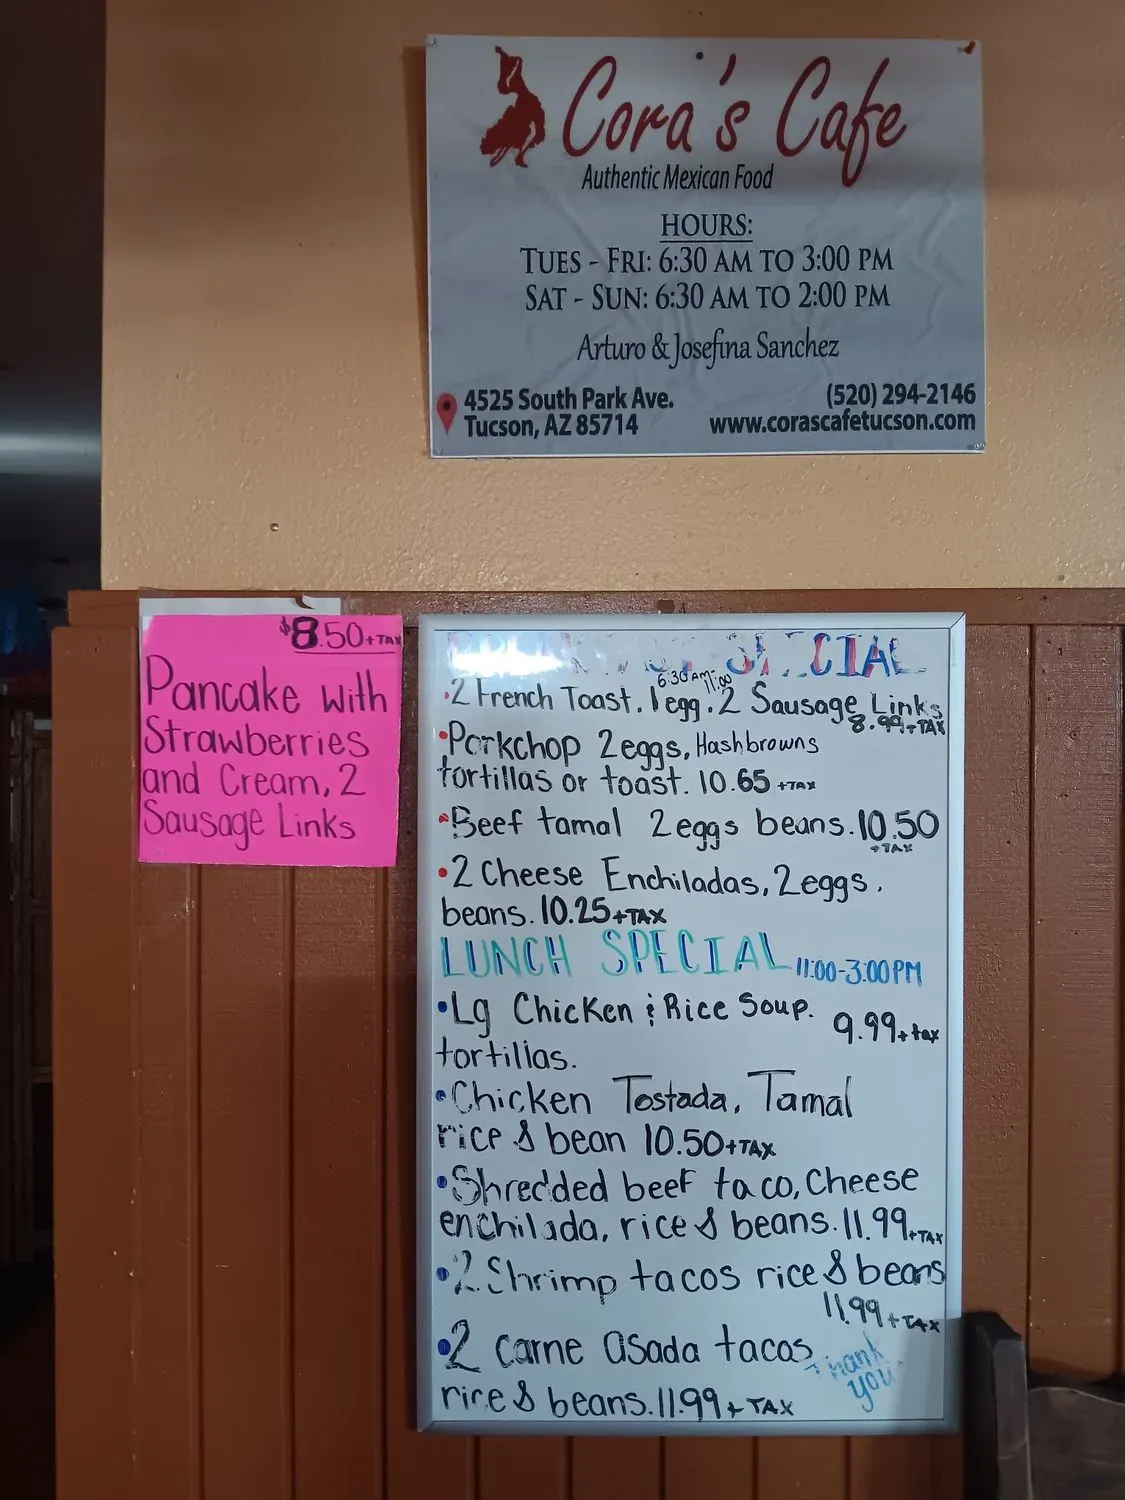 Cora's Cafe
Authentic Mexican Food
HOURS:
TUES - FRI: 6:30 AM TO 3:00 PM
SAT - SUN: 6:30 AM TO 2:00 PM
Arturo & Josefina Sanchez
4525 South Park Ave.
Tucson, AZ 85714
(520) 294-2146
www.corascafetucson.com
$8.50+TAX
Pancake with
Strawberries
and Cream, 2
Sausage Links
SPECIAL
6:30AM-11:00
·2 French Toast. 1 egg. 2 Sausage Links
8.99+TAX
•Porkchop 2eggs, Hashbrowns
tortillas or toast. 10.65 +TAX
•Beef tamal 2eggs beans. 10.50
+TAX
•2 Cheese Enchiladas, 2eggs.
beans. 10.25+TAX
LUNCH SPECIAL 11:00-3:00PM
•Lg Chicken & Rice Soup. 9.99+tax
tortillas.
•Chicken Tostada, Tamal
rice & bean 10.50+TAX
•Shredded beef taco, Cheese
enchilada, rice & beans. 11.99+TAX
•2 Shrimp tacos rice & beans
11.99+TAX
•2 carne asada tacos
rice & beans. 11.99+TAX
Thank
you